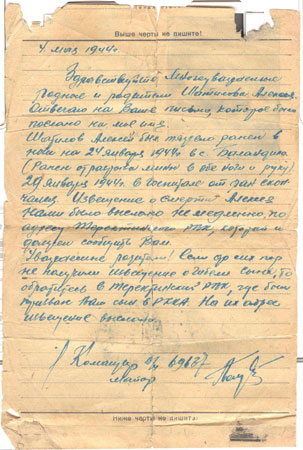 Выше черты не пишите!
4 мая 1944 г.
Здравствуйте Многоуважаемые
родные и родители Шатилова Алексея.
Отвечаю на Ваше письмо, которое было
послано на мое имя
Шатилов Алексей был тяжело ранен в
ночь на 24 января 1944 г в с. Баландино
(Ранен осколками мины в обе ноги и руку)
29 января 1944 г. в госпитале от ран скон
чался. Извещение о смерти Алексея
нами было выслано немедленно по
адресу РВК, который и
должен сообщить Вам.
Уважаемые родители! Если до сих пор
не получили извещение о гибели сына, то
обратитесь в РВК, где был
призван Ваш сын в РККА. На их адрес
извещение выслано.
Командир п/п
майор
Ниже черты не пишите!